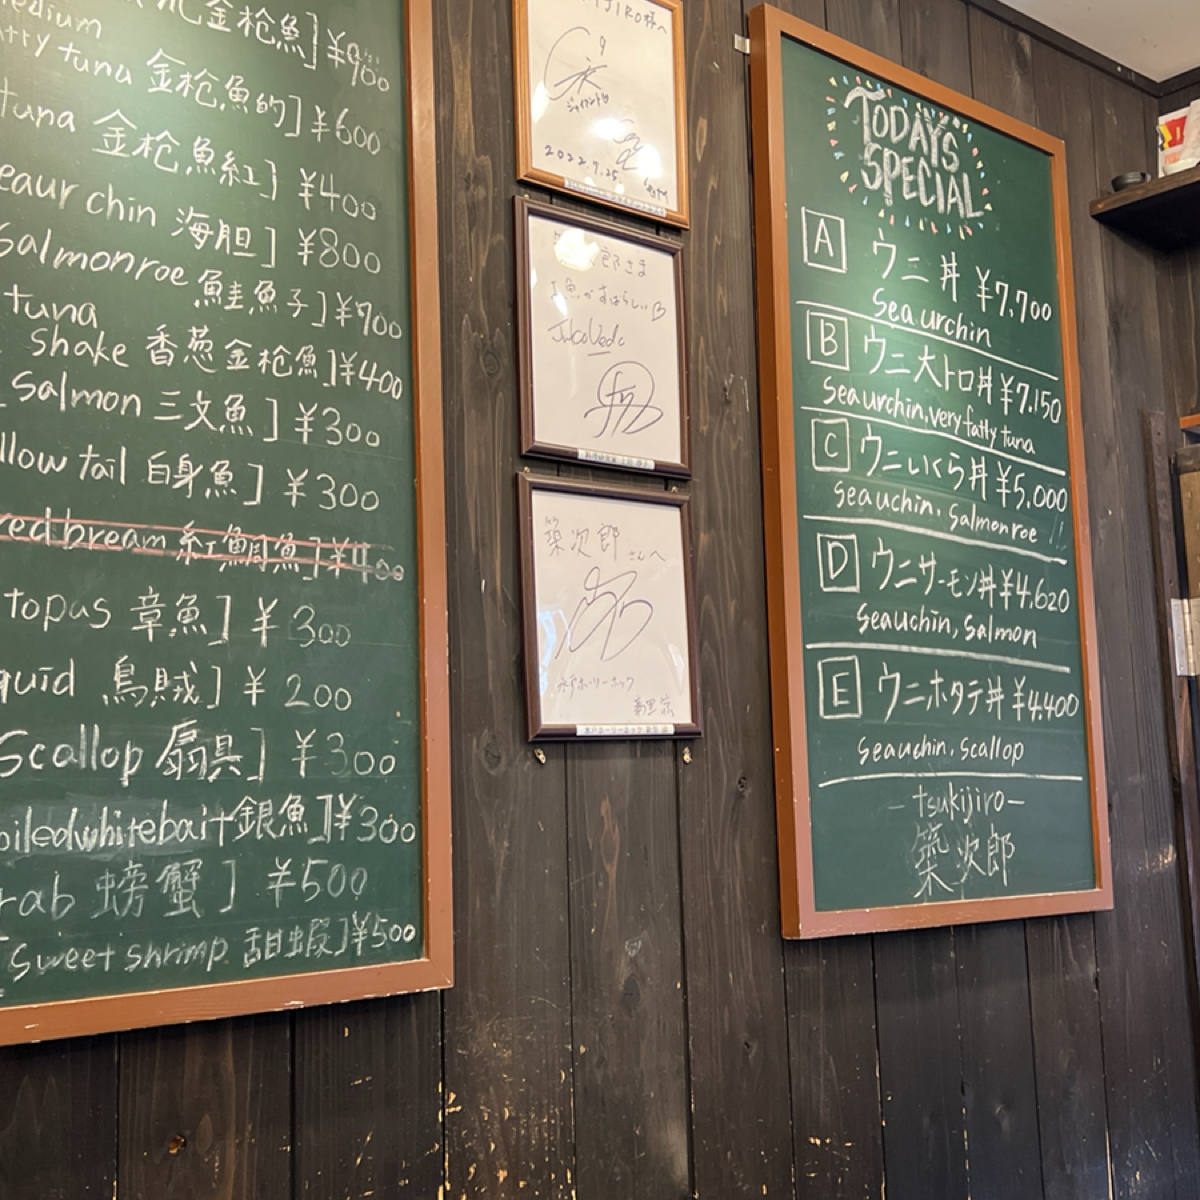 金枪魚] ¥900
edium
atty tuna 金枪魚的] ¥600
tuna 金枪魚紅] ¥400
eaur chin 海胆] ¥800
Salmonroe 鮭魚子] ¥900
tuna
Shake 香葱金枪魚] ¥400
Salmon 三文魚] ¥300
llow tail 白身魚] ¥300
red bream 紅鯛魚] ¥400
topas 章魚] ¥300
quid 鳥賊] ¥200
Scallop 扇具] ¥300
oiled whitebait 銀魚] ¥300
rab 螃蟹] ¥500
sweet shrimp 甜蝦] ¥500
JIRO様へ
2022.9.25
郎さま
魚がすばらしい
築次郎さんへ
水戸ホーリーホック
TODAYS
SPECIAL
A ウニ丼 ¥7,700
Sea urchin
B ウニ大トロ丼 ¥7.150
Seaurchin, very fatty tuna
C ウニいくら丼 ¥5,000
seauchin, salmonroe !!
D ウニサーモン丼 ¥4,620
seauchin, salmon
E ウニホタテ丼 ¥4,400
seauchin, scallop
- tsukijiro -
築次郎